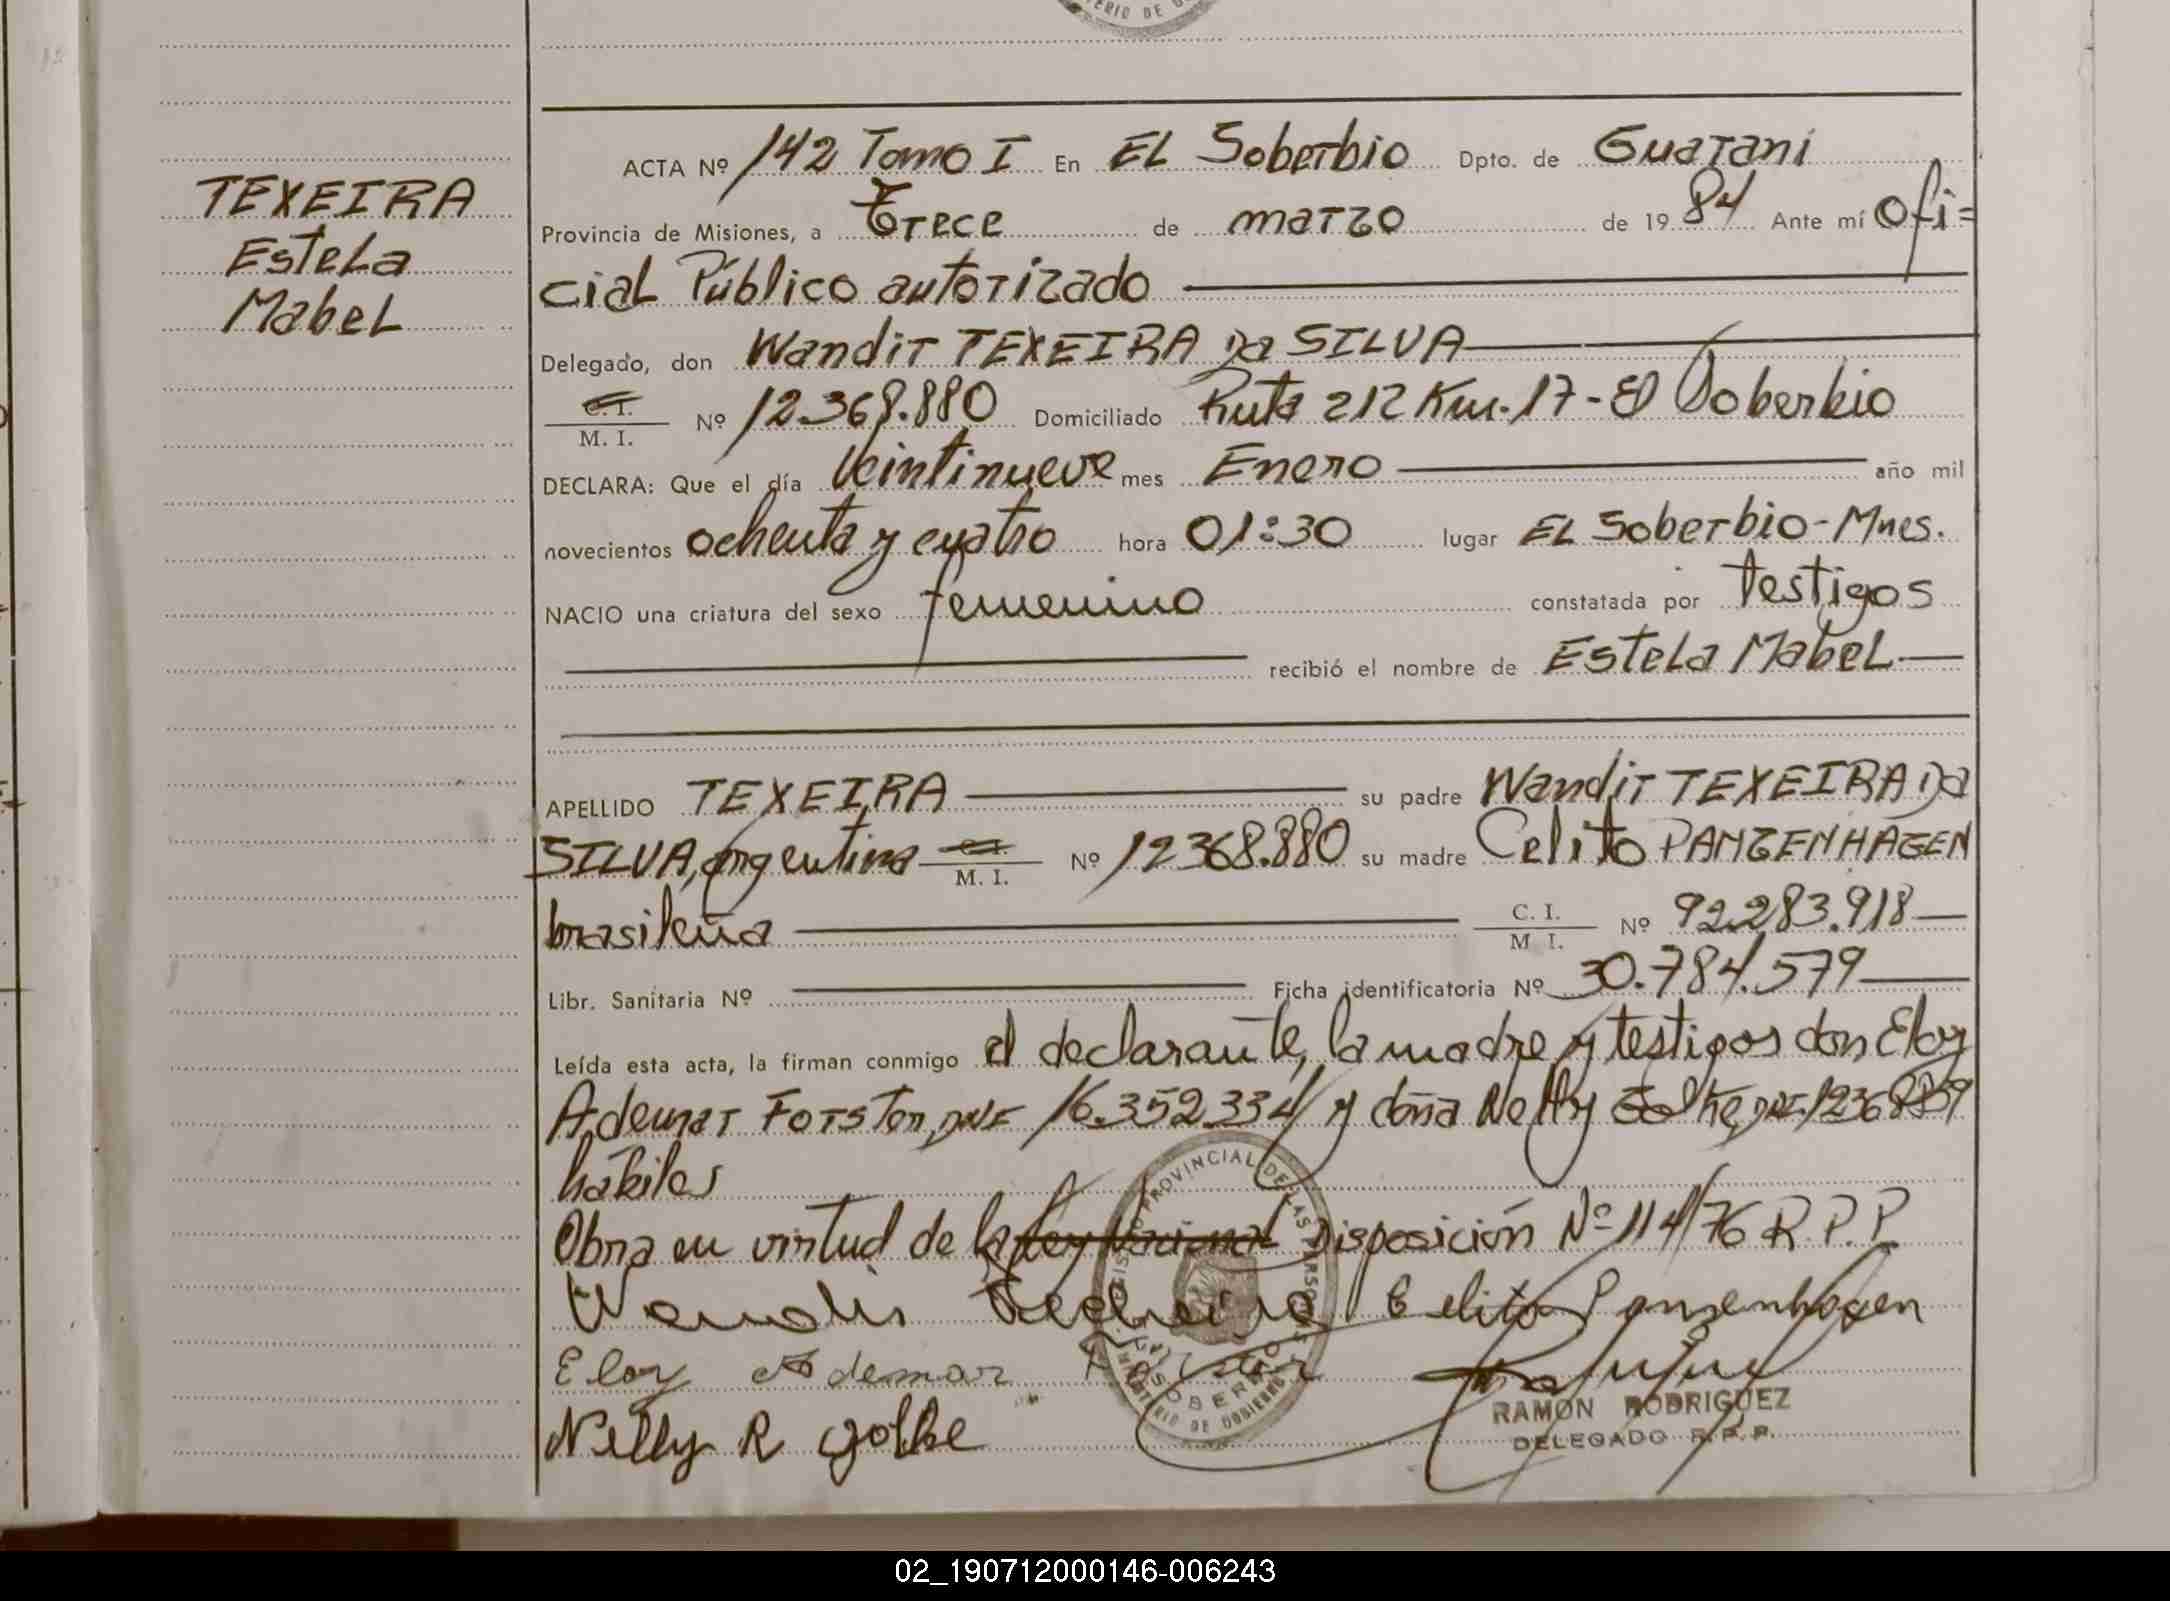 TERIO DE GO
ACTA Nº 142 Tomo I En EL Soberbio Dpto. de Guarani
TEXEIRA
Estela
Mabel
Provincia de Misiones, a Trece de marzo de 1984 Ante mí Ofi=
cial Público autorizado
Delegado, don Wandir TEXEIRA Da SILVA
C. I.
M. I. Nº 12.368.880 Domiciliado Ruta 212 Km. 17 - El Soberbio
DECLARA: Que el día Veintinueve mes Enero año mil
novecientos ochenta y cuatro hora 01:30 lugar EL Soberbio - Mnes.
NACIO una criatura del sexo femenino constatada por testigos
recibió el nombre de Estela Mabel
APELLIDO TEXEIRA su padre Wandir TEXEIRA Da
SILVA, argentina M. I. Nº 12368.880 su madre Celito PANZENHAGEN
brasileña C. I. M I. Nº 92.283.918
Libr. Sanitaria Nº Ficha identificatoria Nº 30.784.579
Leída esta acta, la firman conmigo el declarante, la madre y testigos don Eloy
Ademar Forster, DNI 16.352.334 y doña Nelly
hábiles
Obra en virtud de la Ley Nacional Disposición Nº 114/76 R.P.P
Celito Panzenhagen
Eloy Ademar
Nelly R
PROVINCIAL DE LAS PERSONAS
SOBERBIO
MINISTERIO DE GOBIERNO
RAMON RODRIGUEZ
DELEGADO R.P.P.
02_190712000146-006243